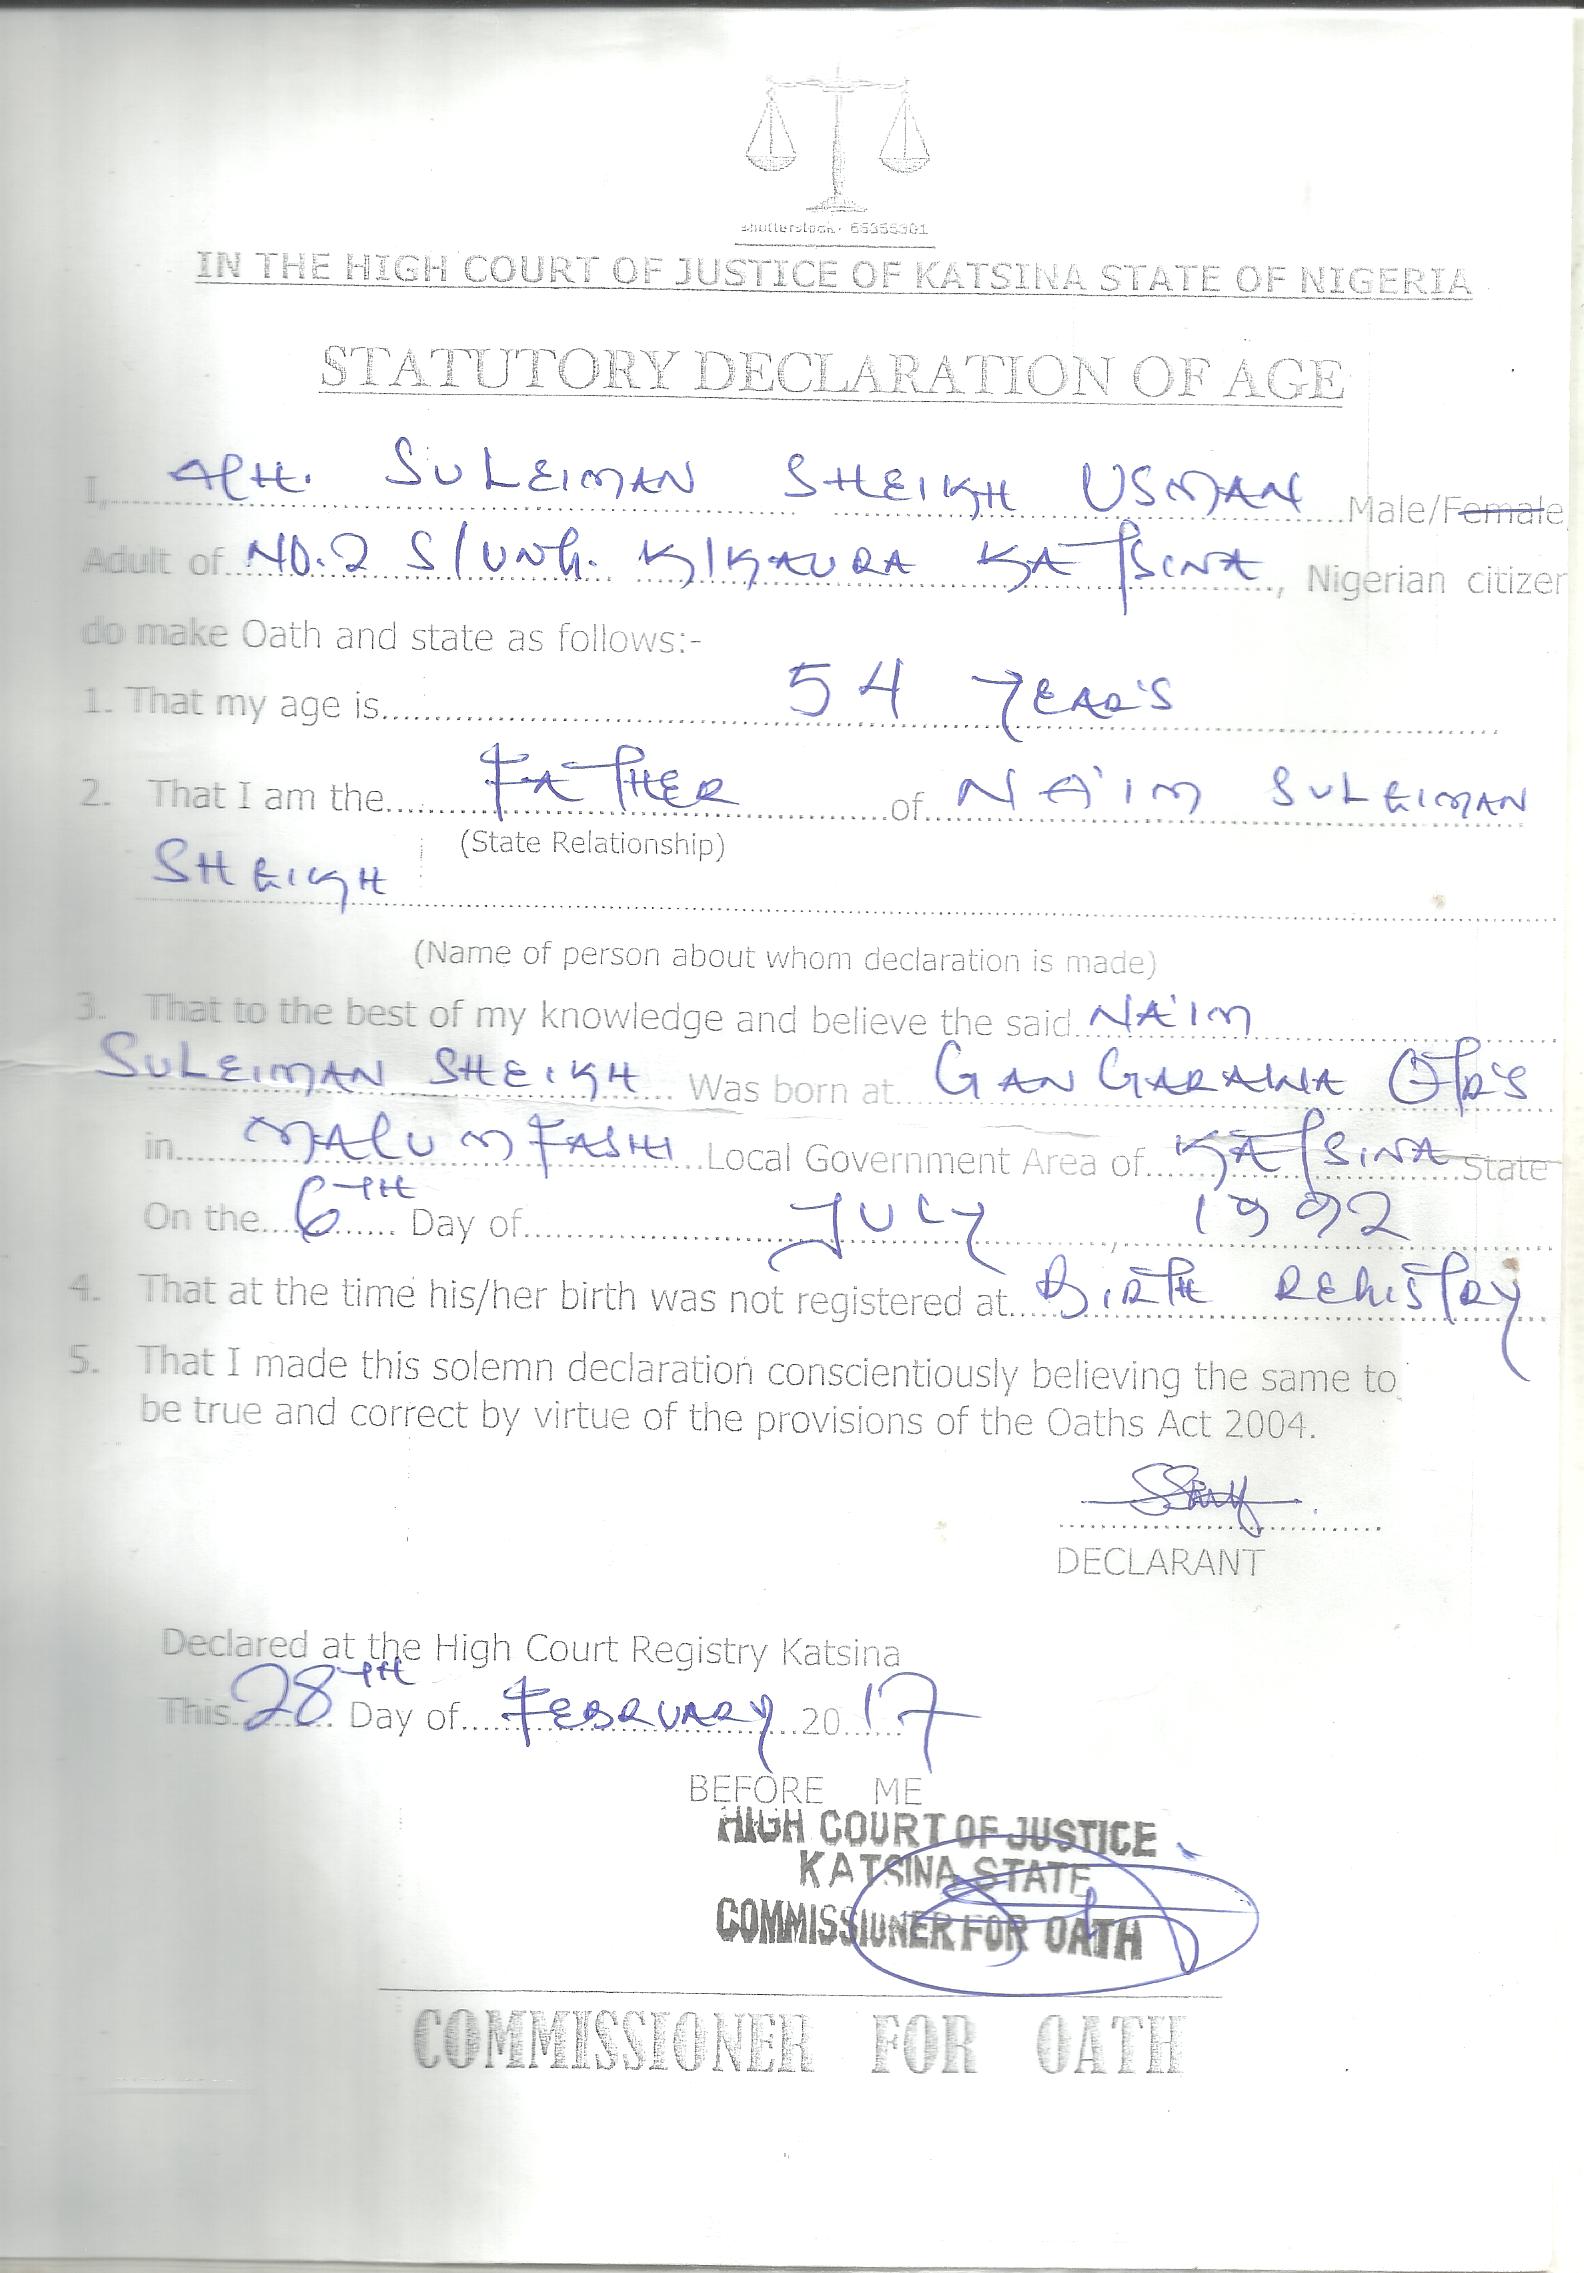 shutterstock · 65355901
IN THE HIGH COURT OF JUSTICE OF KATSINA STATE OF NIGERIA
STATUTORY DECLARATION OF AGE
I, ALH. SULEIMAN SHEIKH USMAN Male/Female
Adult of NO.2 S/UNG. K/KAURA KATSINA, Nigerian citizen
do make Oath and state as follows:-
1. That my age is 54 YEAR'S
2. That I am the FATHER of NA'IM SULEIMAN
(State Relationship)
SHEIKH
(Name of person about whom declaration is made)
3. That to the best of my knowledge and believe the said NA'IM
SULEIMAN SHEIKH Was born at GANGARAWA QTR'S
in MALUMFASHI Local Government Area of KATSINA State
On the 6TH Day of JULY, 1992
4. That at the time his/her birth was not registered at BIRTH REGISTRY
5. That I made this solemn declaration conscientiously believing the same to
be true and correct by virtue of the provisions of the Oaths Act 2004.
DECLARANT
Declared at the High Court Registry Katsina
This 28TH Day of FEBRUARY 2017
BEFORE ME
HIGH COURT OF JUSTICE
KATSINA STATE
COMMISSIONER FOR OATH
COMMISSIONER FOR OATH